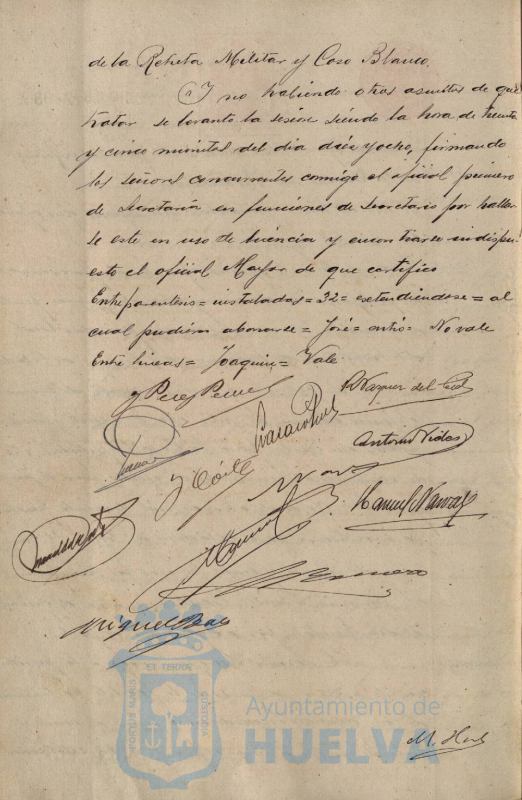 de la Retreta Militar y Coso Blanco.
Y no habiendo otros asuntos de que
tratar se levantó la sesión siendo la hora de treinta
y cinco minutos del dia diez y ocho, firmando
los señores concurrentes conmigo el oficial primero
de Secretaría en funciones de Secretario por hallar
se este en uso de licencia y encontrarse indispu
esto el oficial Mayor de que certifico
Entreparentesis = instaladas = 32 = extendiendose = al
cual pudiera abonarse = José = entró = No vale
Entre lineas = Joaquin = Vale.
Perez
Vazquez del
Antonio Vides
Manuel Navar
Romero
Miguel
PORTUS MARIS
ET TERRÆ
CUSTODIA
Ayuntamiento de
HUELVA
M.